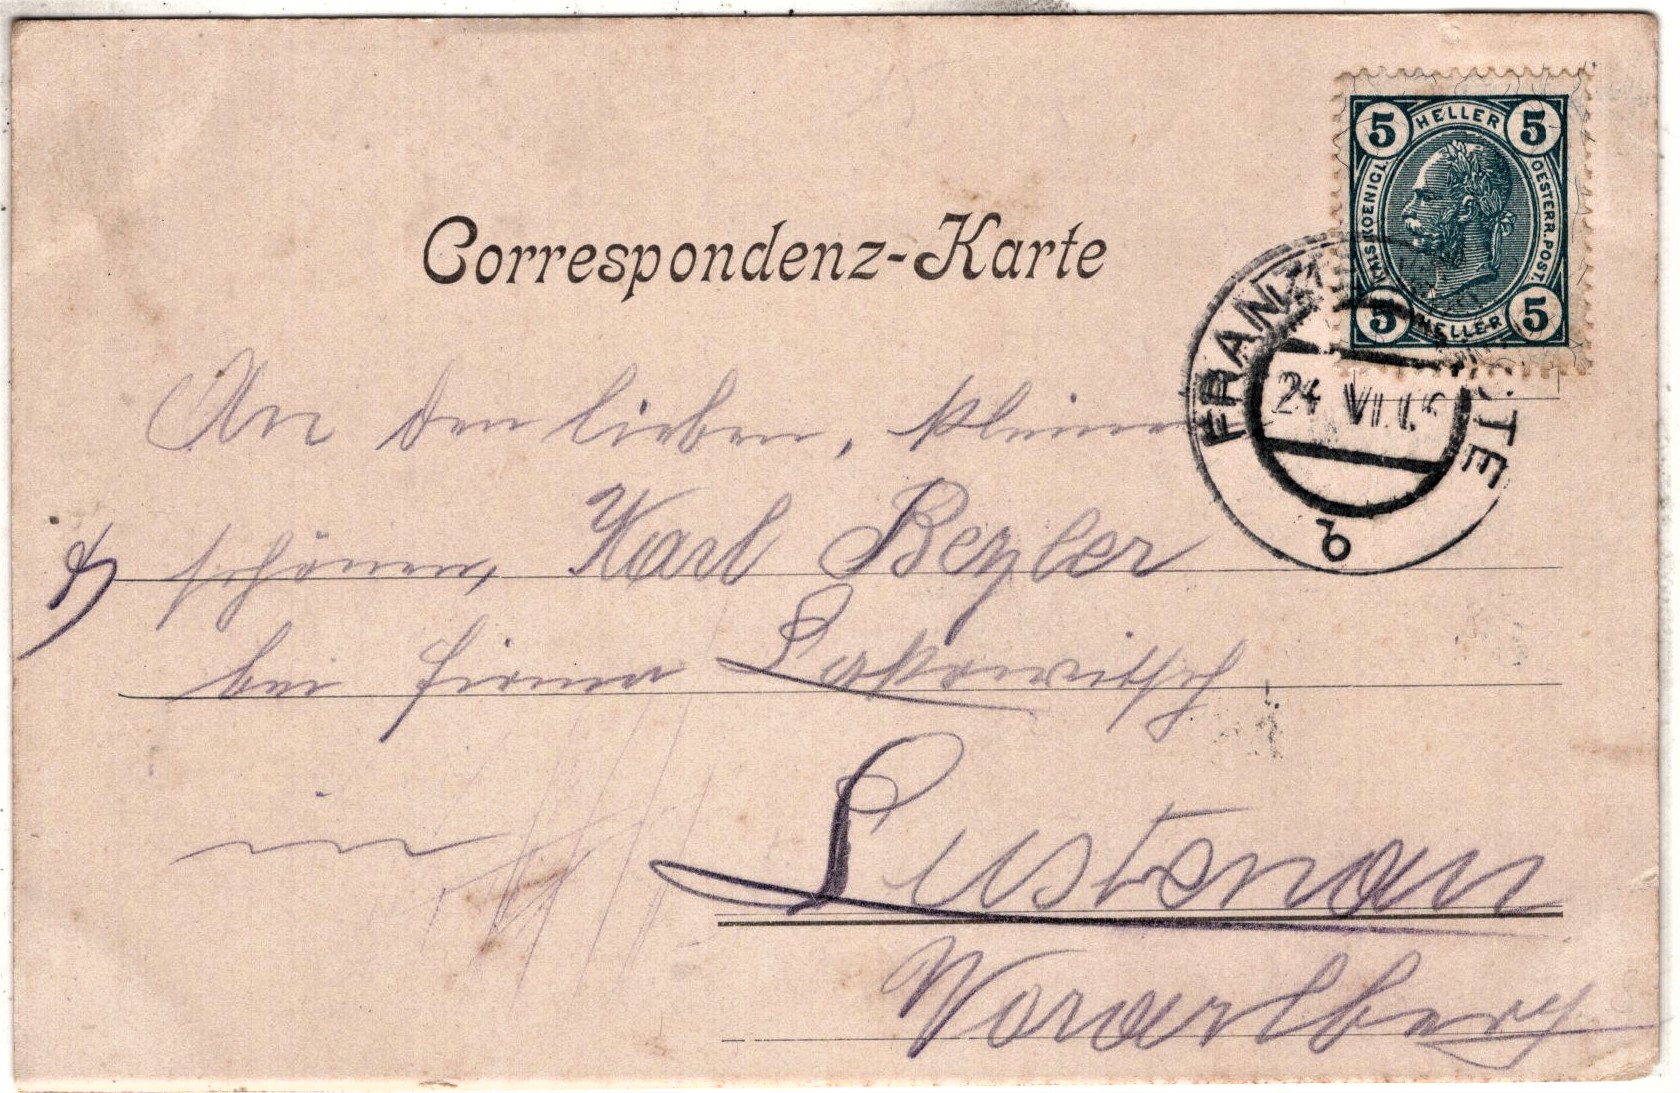 5 HELLER 5
KAIS.KOENIGL. OESTERR.POST.
5 HELLER 5
Correspondenz-Karte
FRANZ
24 VI
b
An den lieben, kleinen
& schönen, Karl Bezler
bei Firma
in Lustenau
Vorarlberg